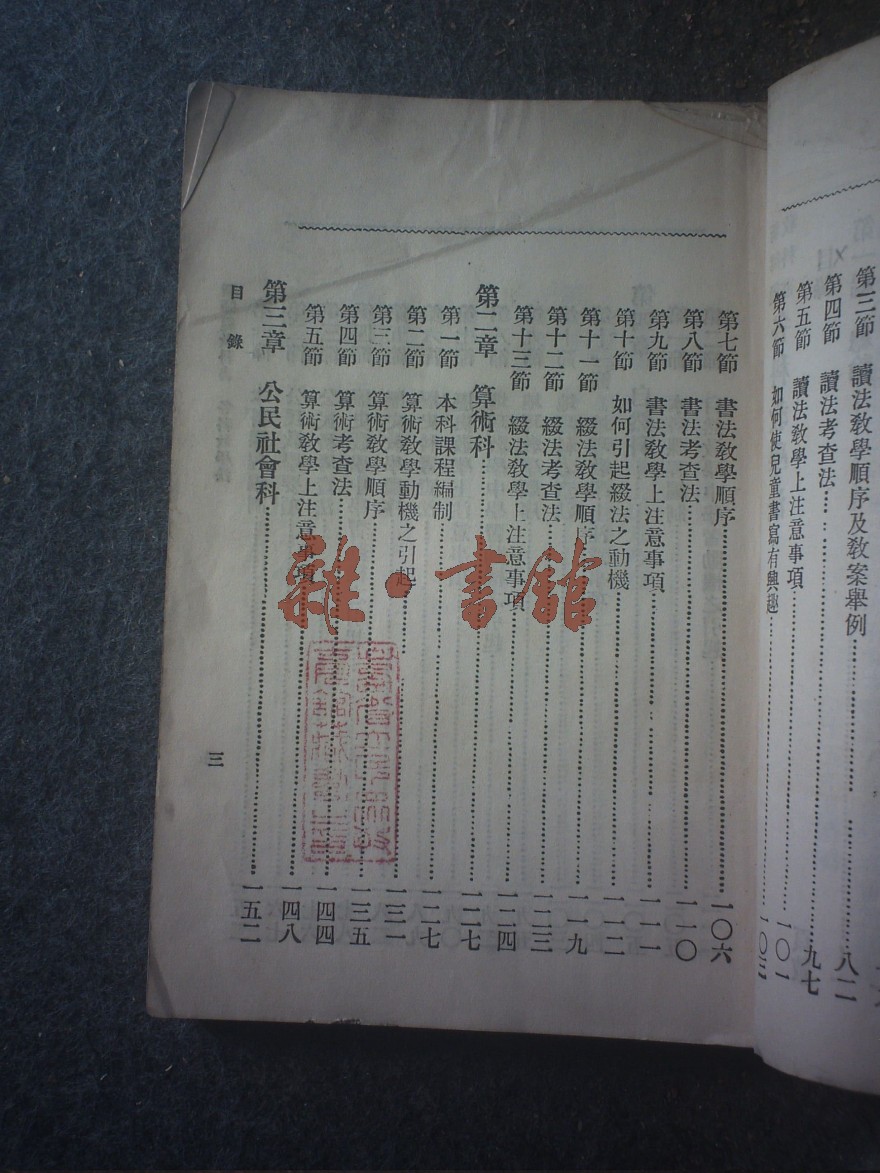 第三節　讀法教學順序及教案舉例
第四節　讀法考查法……八二
第五節　讀法教學上注意事項……九七
第六節　如何使兒童書寫有興趣……一〇三
第七節　書法教學順序……一〇六
第八節　書法考查法……一一〇
第九節　書法教學上注意事項……一一一
第十節　如何引起綴法之動機……一一二
第十一節　綴法教學順序……一一九
第十二節　綴法考查法……一二三
第十三節　綴法教學上注意事項……一二四
第二章　算術科……一二七
第一節　本科課程編制……一二七
第二節　算術教學動機之引起……一三一
第三節　算術教學順序……一三五
第四節　算術考查法……一四四
第五節　算術教學上注意事項……一四八
第三章　公民社會科……一五二
目錄
三
雜·書館